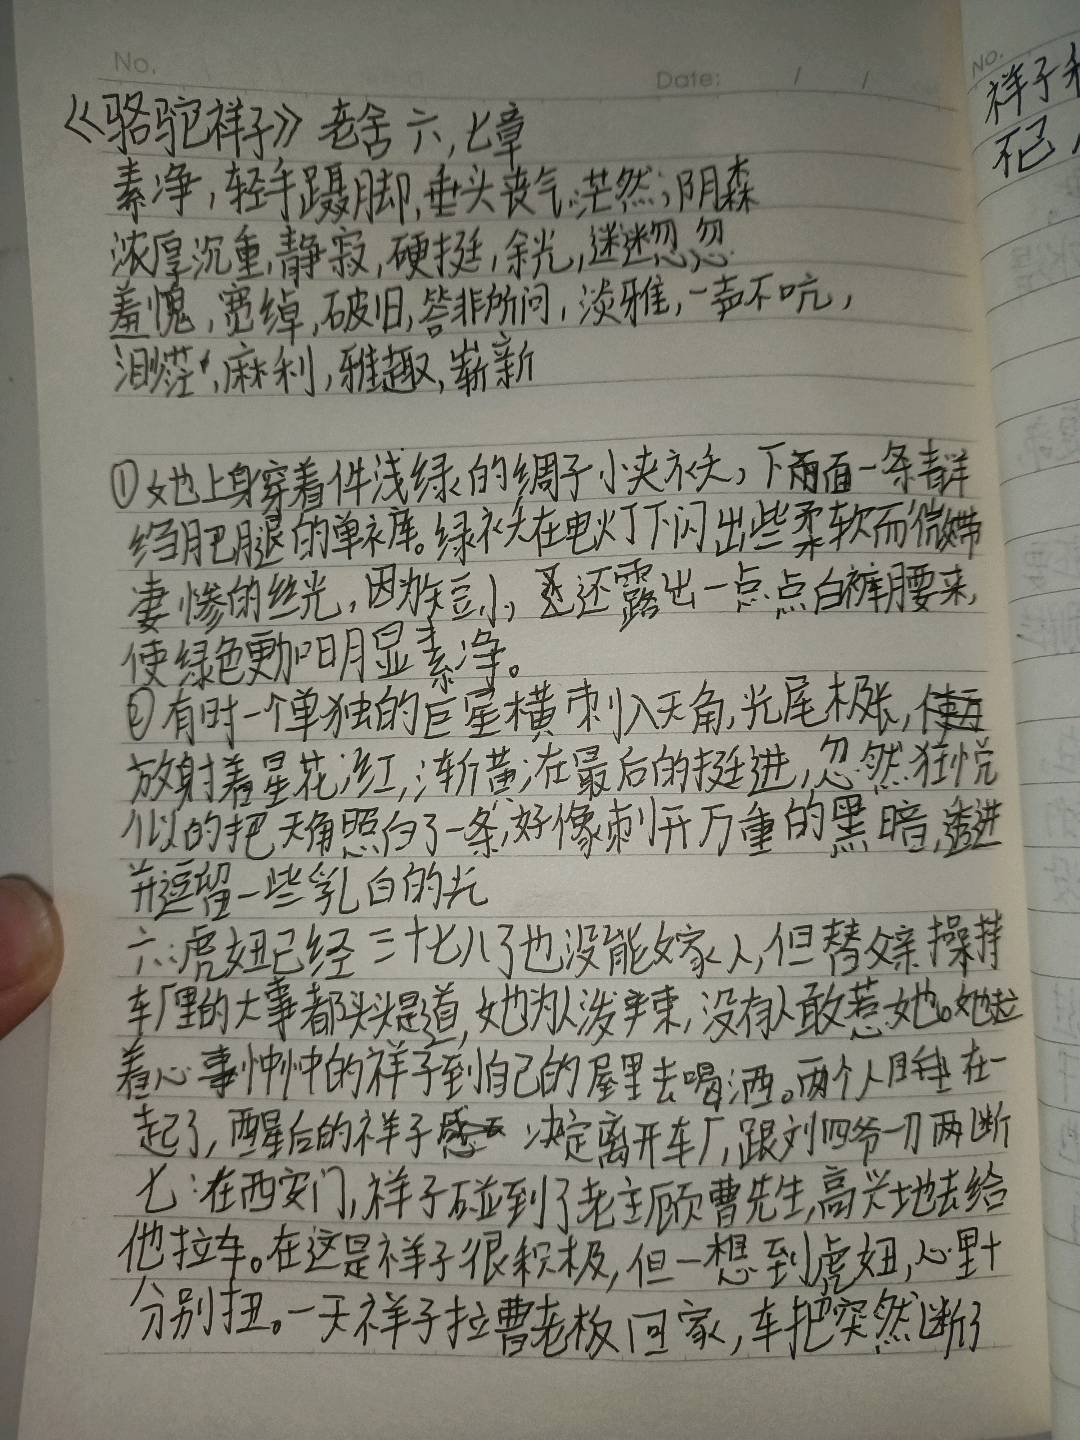 No.
Date: / /
《骆驼祥子》老舍 六,七章
素净,轻手蹑脚,垂头丧气,茫然,阴森
浓厚沉重,静寂,硬挺,余光,迷迷忽忽
羞愧,宽绰,破旧,答非所问,淡雅,一声不吭,
渺茫,麻利,雅趣,崭新
①她上身穿着件浅绿的绸子小夹袄,下面一条青洋
绉肥腿的单裤。绿袄在电灯下闪出些柔软而微带
凄惨的丝光,因为短小,还露出一点点白裤腰来,
使绿色更加明显素净。
②有时一个单独的巨星横刺入天角,光尾极长,
放射着星花;红,渐黄;在最后的挺进,忽然狂悦
似的把天角照白了一条,好像刺开万重的黑暗,透进
并逗留一些乳白的光
六:虎妞已经三十七八了也没能嫁人,但替父亲操持
车厂里的大事都头头是道,她为人泼辣,没有人敢惹她。她拉
着心事忡忡的祥子到自己的屋里去喝酒。两个人睡在一
起了,醒后的祥子 决定离开车厂,跟刘四爷一刀两断
七:在西安门,祥子碰到了老主顾曹先生,高兴地去给
他拉车。在这是祥子很积极,但一想到虎妞,心里十
分别扭。一天祥子拉曹老板回家,车把突然断了
No.
祥子
不己,